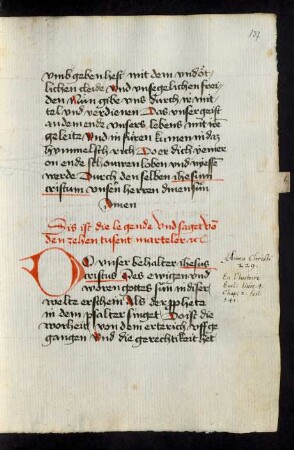 137
vmb geben hest mit dem vndot
lichen cleide Vnd vnsegelichen frei
den Nun gibe vns durch ir mit
tel vnd verdienen Das vnser geist
an dem ende vnsers lebens mit ire
geleitz Vnd in füren kumen in daz
hymmelsch rich Do er dich yemer
on ende schouwen loben vnd nyessen
werde Durch den selben ihesum
cristum vnsern herren dinen sun
Amen
Dis ist die legende Vnd saget vo
den zehen tusent marteleren
DO vnser behalter ihesus
cristus Des ewigen vnd
woren gottes sun in diser
welte erschein Als der ppheta
in dem psalter singet Do ist die
worheit von dem ertrich vffge
gangen Vnd die gerechtikeit het
Anno Christi
229.